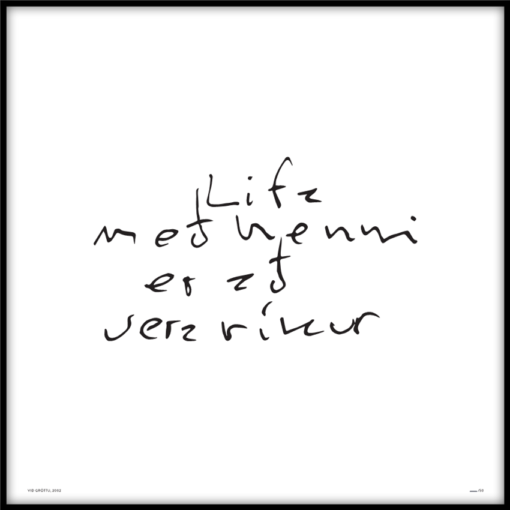 Lifa
með henni
er að
vera ríkur
VIÐ GRÓTTU, 2022
/50